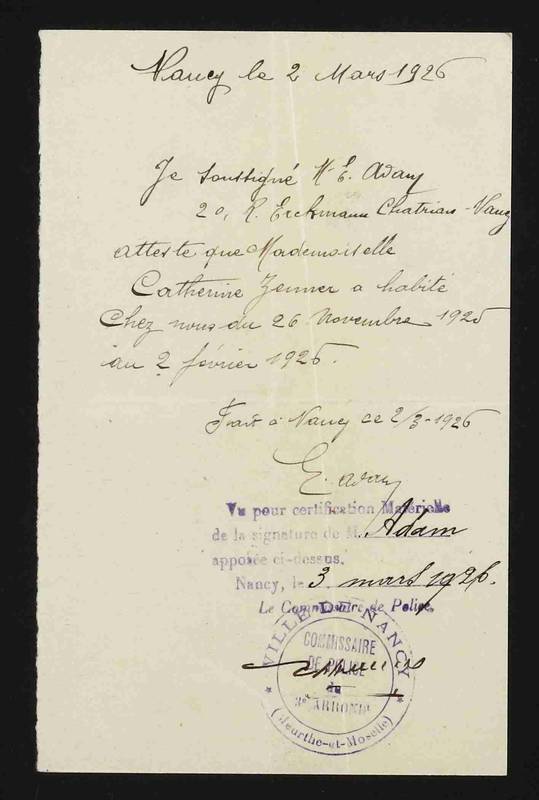 Nancy le 2 Mars 1926
Je soussigné Mr E. Adam
20, R. Erckmann Chatrian - Nancy
atteste que Mademoiselle
Catherine Zenner a habité
Chez nous du 26 Novembre 1925
au 2 février 1926.
Fait à Nancy ce 2/3-1926
E. Adam
Vu pour certification Matérielle
de la signature de M. Adam
apposée ci-dessus.
Nancy, le 3 mars 1926.
Le Commissaire de Police,
VILLE DE NANCY
COMMISSAIRE
DE POLICE
du
ARRONDt
(Meurthe-et-Moselle)